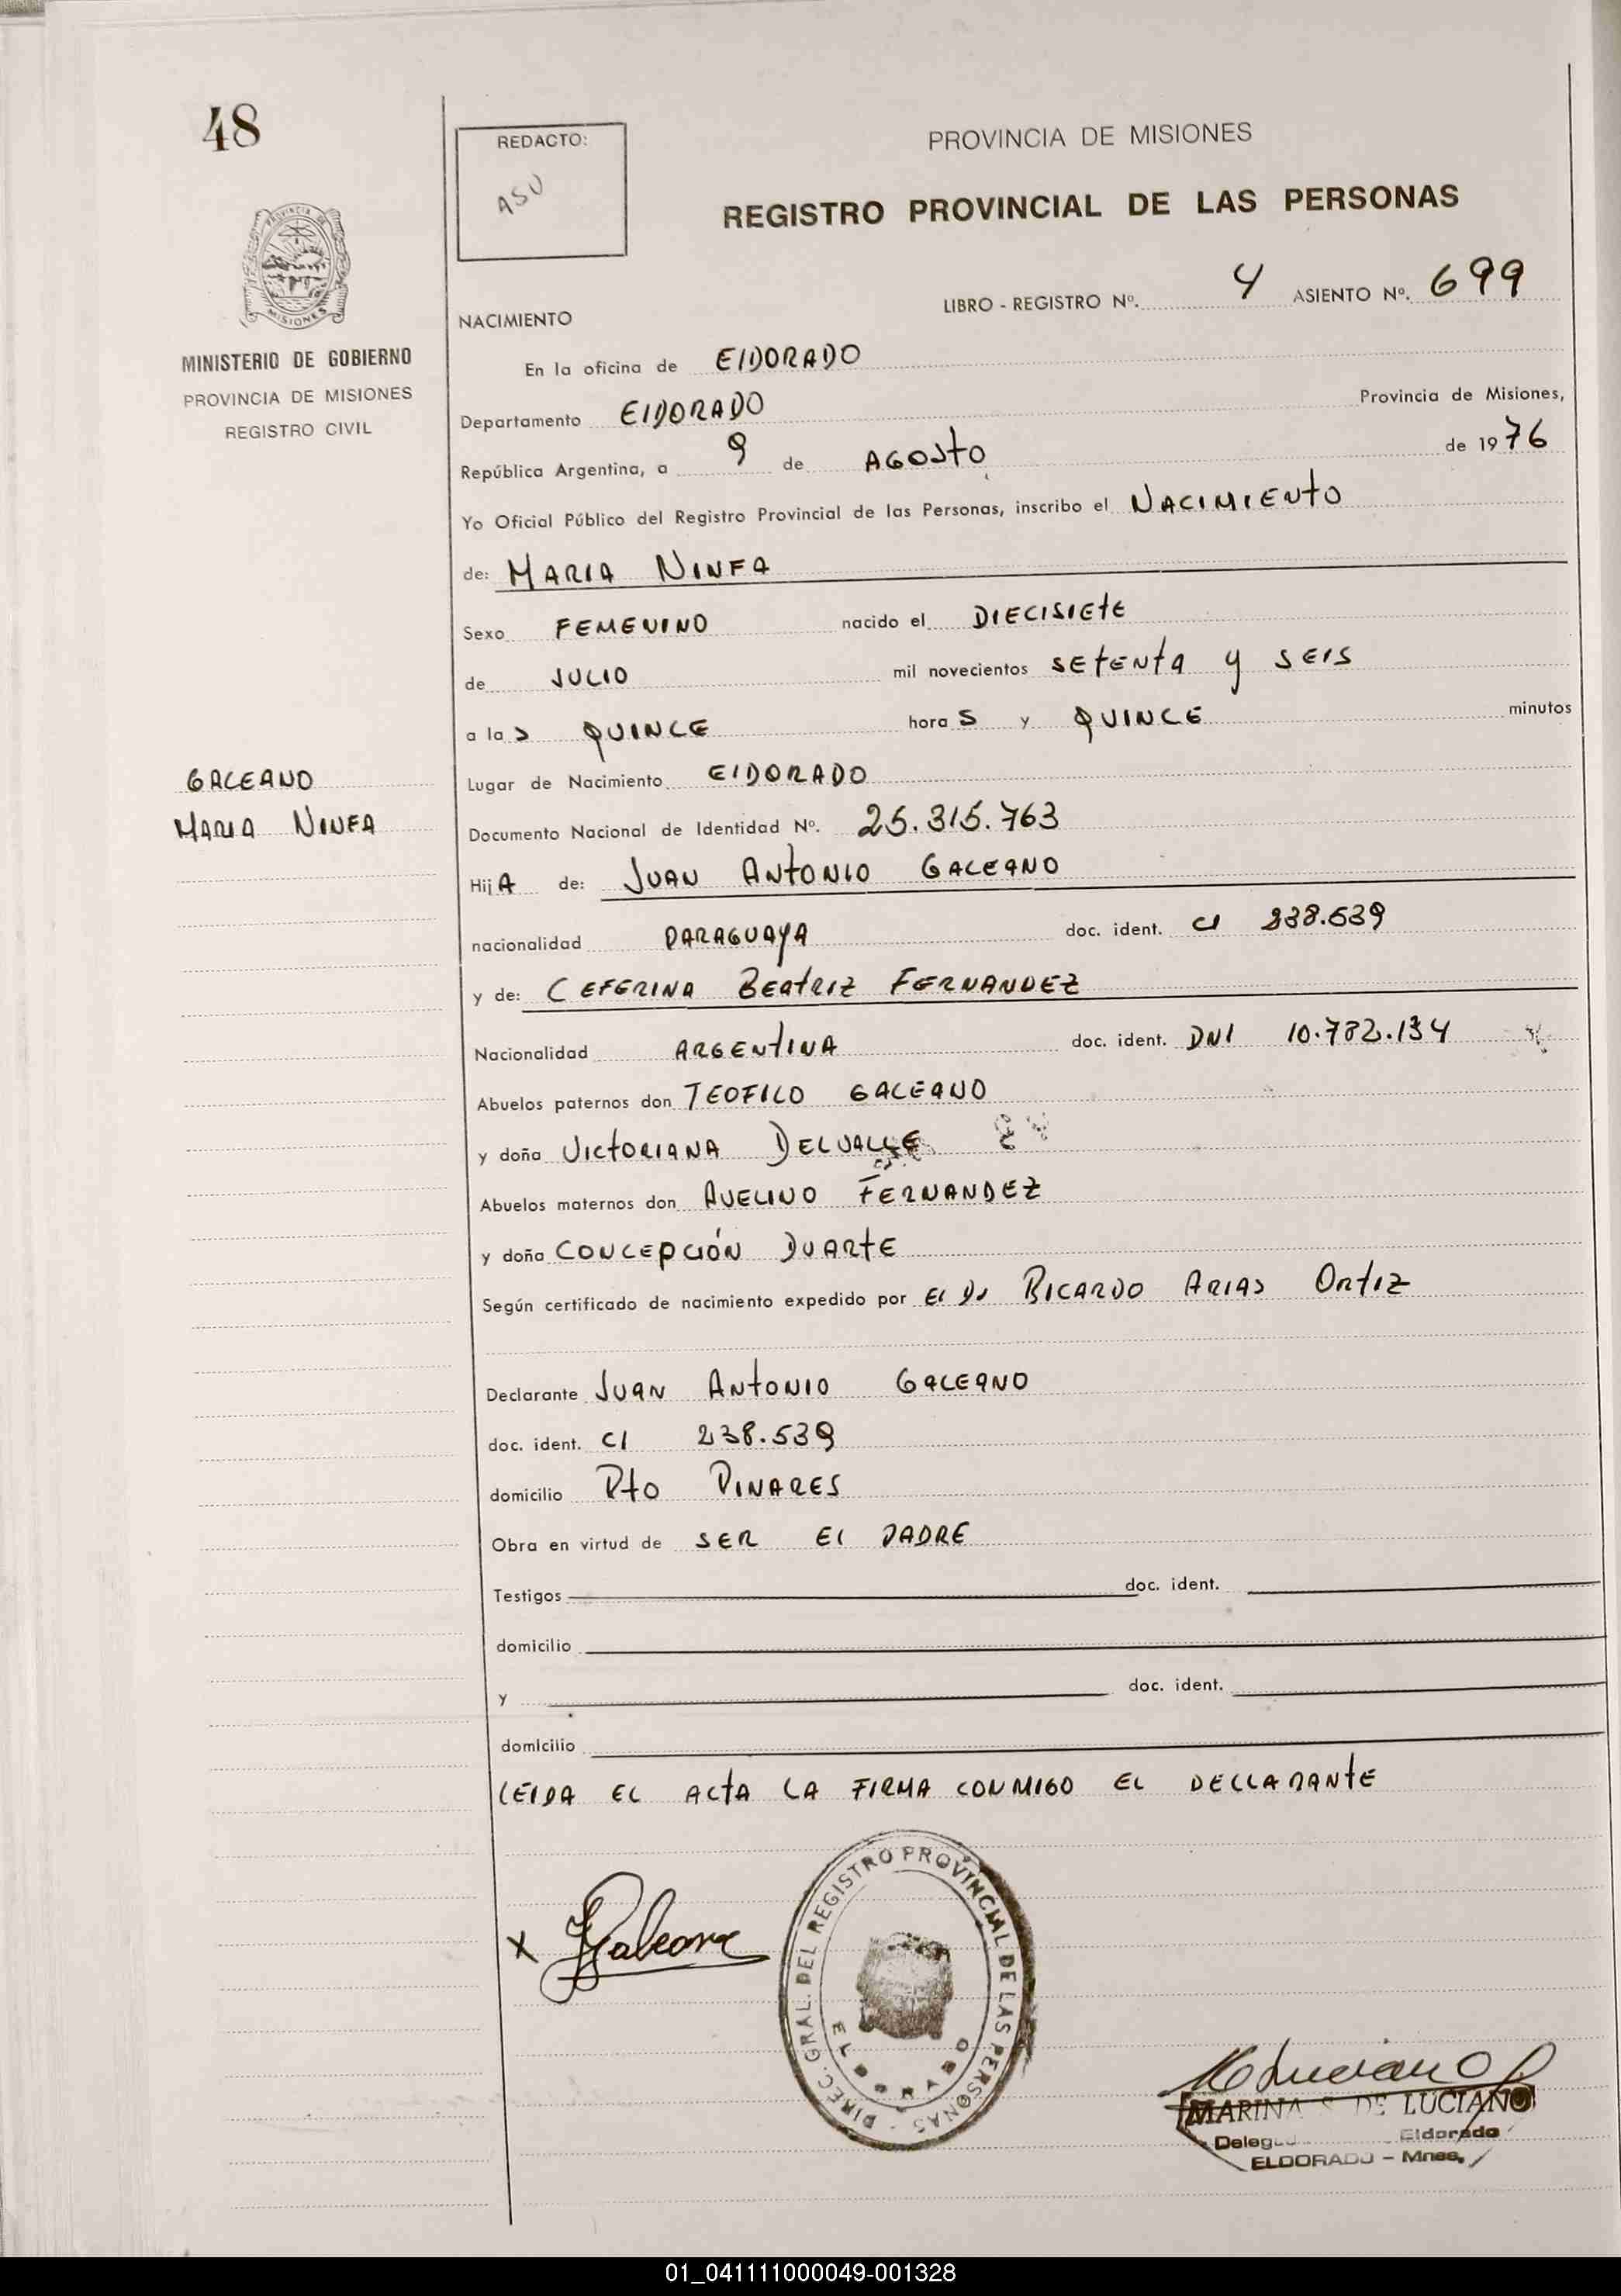 48
REDACTO:
ASU
PROVINCIA DE MISIONES
REGISTRO PROVINCIAL DE LAS PERSONAS
PROVINCIA DE MISIONES
MINISTERIO DE GOBIERNO
PROVINCIA DE MISIONES
REGISTRO CIVIL
LIBRO - REGISTRO Nº. 4 ASIENTO Nº. 699
NACIMIENTO
En la oficina de ElDORADO
Departamento ElDORADO Provincia de Misiones,
República Argentina, a 9 de AGOSTO de 1976
Yo Oficial Público del Registro Provincial de las Personas, inscribo el NACIMIENTO
de: MARIA NINFA
Sexo FEMENINO nacido el DIECISIETE
de JULIO mil novecientos SETENTA y SEIS
a las QUINCE horas y QUINCE minutos
GALEANO
MARIA NINFA
Lugar de Nacimiento ElDORADO
Documento Nacional de Identidad Nº. 25.315.763
HijA de: JUAN ANTONIO GALEANO
nacionalidad PARAGUAYA doc. ident. CI 238.539
y de: CEFERINA BEATRIZ FERNANDEZ
Nacionalidad ARGENTINA doc. ident. DNI 10.782.134
Abuelos paternos don TEOFILO GALEANO
y doña VICTORIANA DELVALLE
Abuelos maternos don AVELINO FERNANDEZ
y doña CONCEPCIÓN DUARTE
Según certificado de nacimiento expedido por El Dr RICARDO ARIAS ORTIZ
Declarante JUAN ANTONIO GALEANO
doc. ident. CI 238.539
domicilio Pto PINARES
Obra en virtud de SER El PADRE
Testigos doc. ident.
domicilio
y doc. ident.
domicilio
LEIDA EL ACTA LA FIRMA CONMIGO EL DECLARANTE
x Galeano
DIREC. GRAL. DEL REGISTRO PROVINCIAL DE LAS PERSONAS
ELDORADO
MARINA S. DE LUCIANO
Eldorado
ELDORADO - Mnes.
01_041111000049-001328